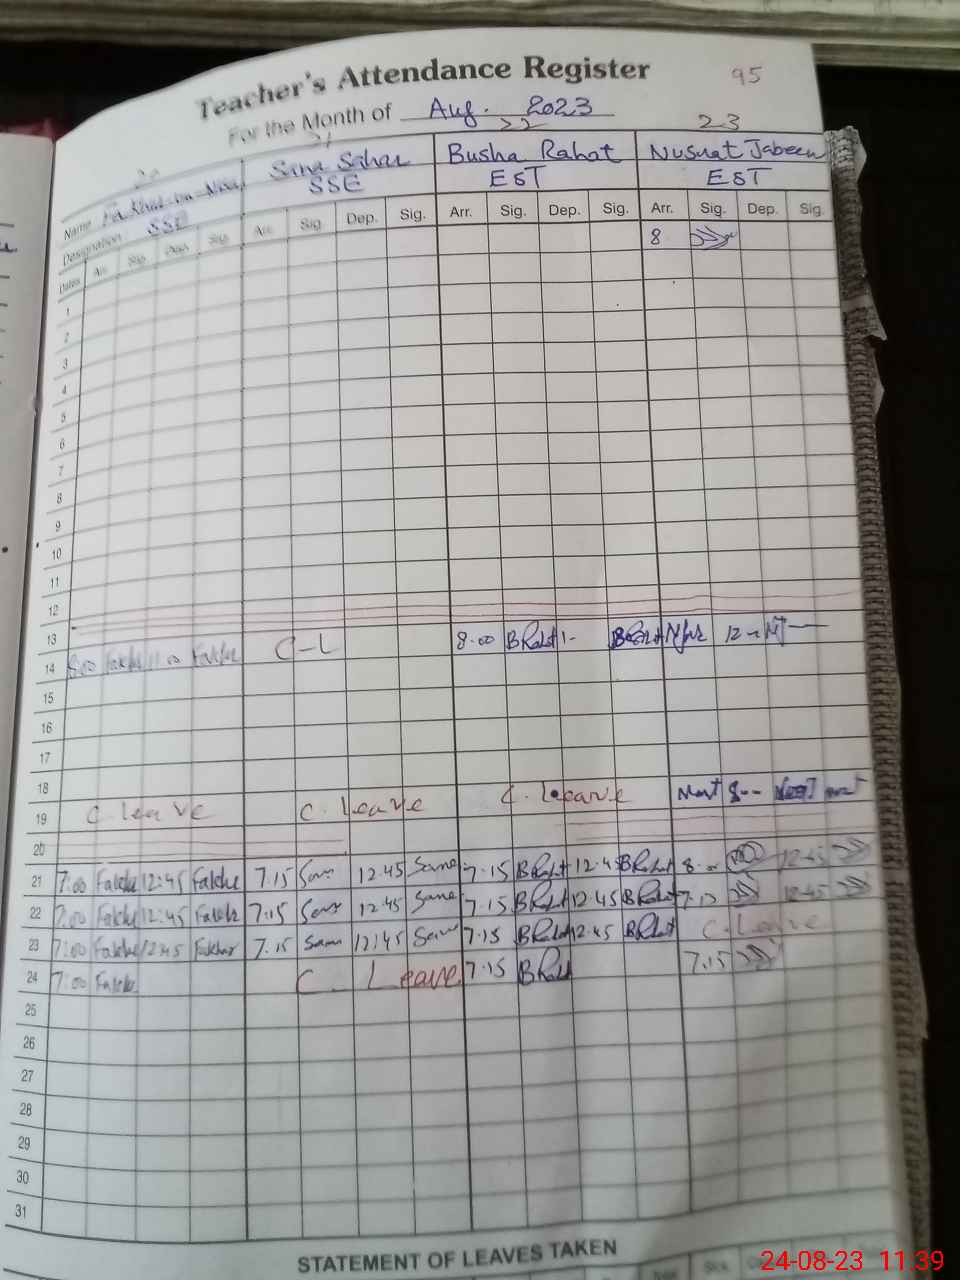 Teacher's Attendance Register 95
For the Month of Aug. 2023
20 21 22 23
Name Fakhar-un-Nisa Sana Sahar Busha Rahat Nusrat Jabeen
Designation SSE SSE EST EST
Dates Arr. Sig. Dep. Sig. Arr. Sig. Dep. Sig. Arr. Sig. Dep. Sig. Arr. Sig. Dep. Sig.
8
1
2
3
4
5
6
7
8
9
10
11
12
13
14 8:00 Fakhr 11:00 Fakhr C-L 8.00 BRahat 1-
15
16
17
18
19 C. leave C. leave C. leave
20
21 7:00 Fakhr 12:45 Fakhr 7.15 Sana 12.45 Sana 7.15 BRahat 12.45 BRahat 8 12.45
22 7:00 Fakhr 12:45 Fakhr 7.15 Sana 12.45 Sana 7.15 BRahat 12.45 BRahat 12.45
23 7:00 Fakhr 12:45 Fakhr 7.15 Sana 12:45 Sana 7.15 BRahat 12.45 BRahat C. Leave
24 7:00 Fakhr C. Leave 7.15 BRahat 7.15
25
26
27
28
29
30
31
STATEMENT OF LEAVES TAKEN
24-08-23 11:39